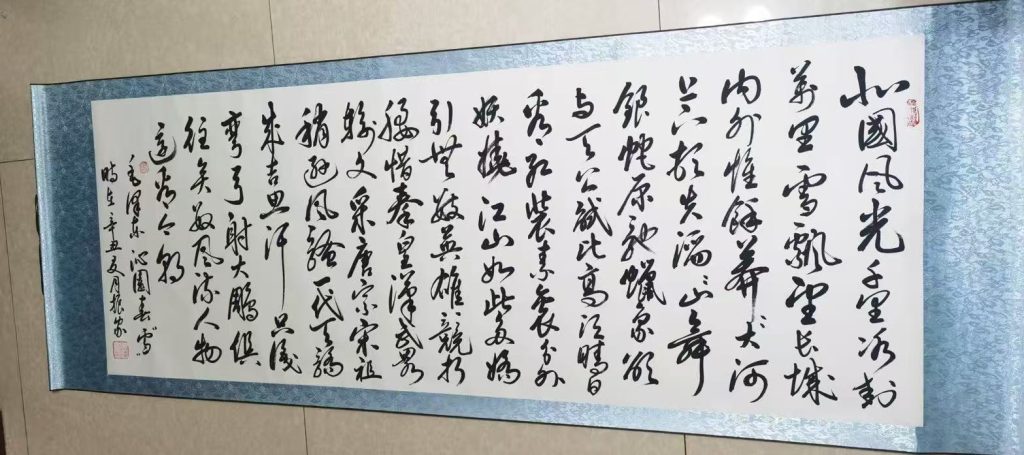 北國风光千里冰封
萬里雪飄望长城
内外惟餘莽々大河
上下頓失滔々山舞
銀蛇原馳蠟象欲
与天公試比高須晴日
看红裝素裹分外
妖嬈江山如此多嬌
引無數英雄競折
腰惜秦皇漢武略
輸文采唐宗宋祖
稍遜风騷一代天驕
成吉思汗只識
彎弓射大鵰俱
往矣數风流人物
還看今朝
毛澤东沁園春雪
時在辛丑夏月振家